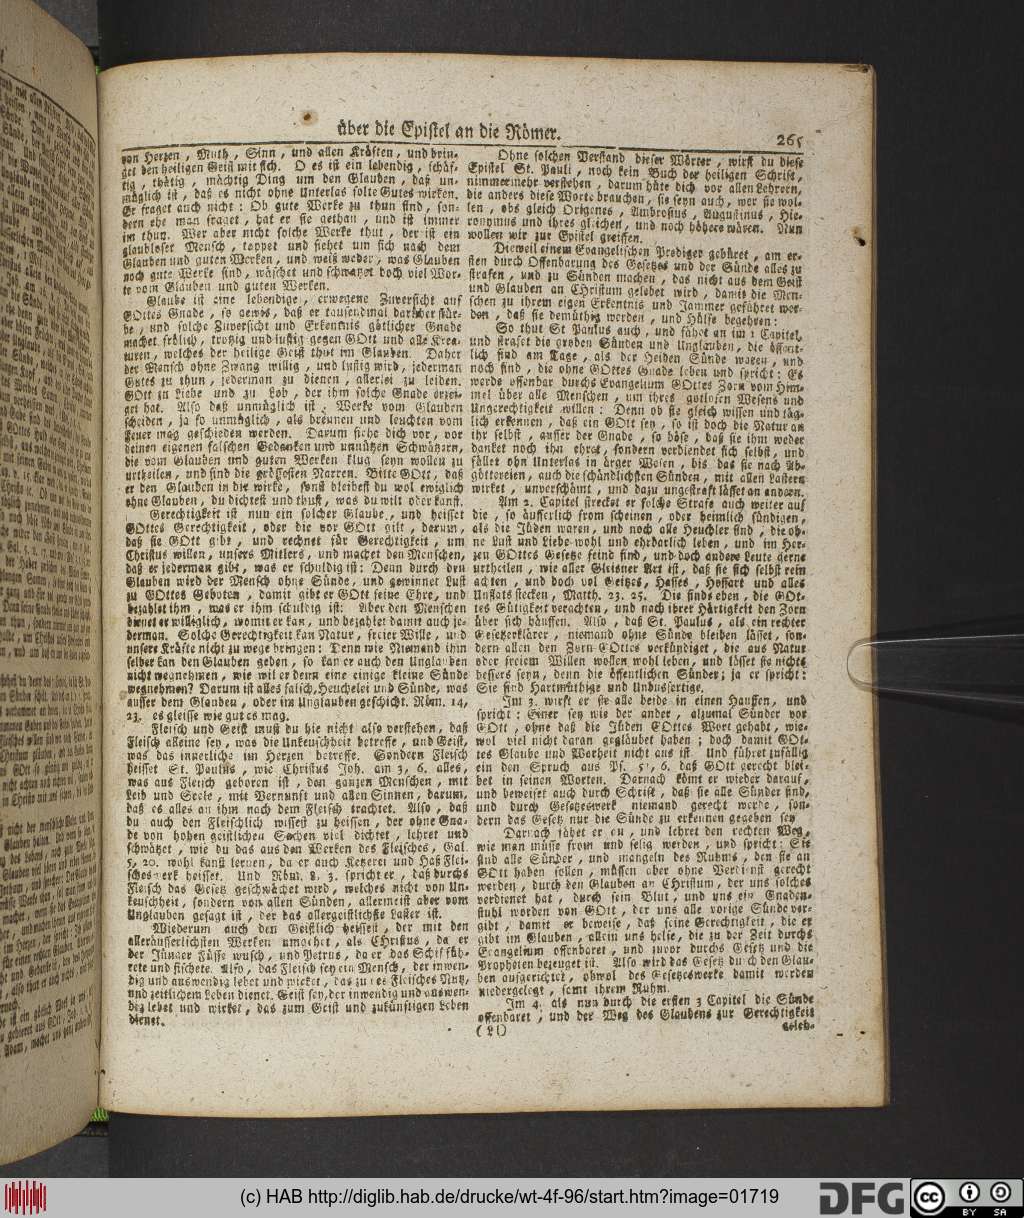 über die Epistel an die Römer.
265
von Herzen, Muth, Sinn, und allen Kräften, und brin-
get den heiligen Geist mit sich. O es ist ein lebendig, schäf-
tig, thätig, mächtig Ding um den Glauben, daß un-
müglich ist, daß es nicht ohne Unterlas solte Gutes wirken.
Er fraget auch nicht: Ob gute Werke zu thun sind, son-
dern ehe man fraget, hat er sie gethan, und ist immer
im thun. Wer aber nicht solche Werke thut, der ist ein
glaubloser Mensch, tappet und siehet um sich nach dem
Glauben und guten Werken, und weiß weder, was Glauben
noch gute Werke sind, wäschet und schwatzet doch viel Wor-
te vom Glauben und guten Werken.
Glaube ist eine lebendige, erwegene Zuversicht auf
GOttes Gnade, so gewis, daß er tausendmal darüber stür-
be, und solche Zuversicht und Erkentnis götlicher Gnade
machet frölich, trotzig und lustig gegen GOtt und alle Krea-
turen, welches der heilige Geist thut im Glauben. Daher
der Mensch ohne Zwang willig, und lustig wird, jederman
Gutes zu thun, jederman zu dienen, allerlei zu leiden,
GOtt zu Liebe und zu Lob, der ihm solche Gnade erzei-
get hat. Also daß unmüglich ist, Werke vom Glauben
scheiden, ja so unmöglich, als brennen und leuchten vom
Feuer mag geschieden werden. Darum siehe dich vor, vor
deinen eigenen falschen Gedanken und unnützen Schwätzern,
die vom Glauben und guten Werken klug seyn wollen zu
urtheilen, und sind die größesten Narren. Bitte GOtt, daß
er den Glauben in dir wirke, sonst bleibest du wol ewiglich
ohne Glauben, du dichtest und thust, was du wilt oder kanst.
Gerechtigkeit ist nun ein solcher Glaube, und heisset
GOttes Gerechtigkeit, oder die vor GOtt gilt, darum,
daß sie GOtt gibt, und rechnet für Gerechtigkeit, um
Christus willen, unsers Mitlers, und machet den Menschen,
daß er jederman gibt, was er schuldig ist: Denn durch den
Glauben wird der Mensch ohne Sünde, und gewinnet Lust
zu GOttes Geboten, damit gibt er GOtt seine Ehre, und
bezahlet ihm, was er ihm schuldig ist: Aber den Menschen
dienet er williglich, womit er kan, und bezahlet damit auch je-
derman. Solche Gerechtigkeit kan Natur, freier Wille, und
unsere Kräfte nicht zu wege bringen: Denn wie Niemand ihm
selber kan den Glauben geben, so kan er auch den Unglauben
nicht wegnehmen, wie wil er denn eine einige kleine Sünde
wegnehmen? Darum ist alles falsch, Heuchelei und Sünde, was
ausser dem Glauben, oder im Unglauben geschicht. Röm. 14,
23. es gleisse wie gut es mag.
Fleisch und Geist must du hie nicht also verstehen, daß
Fleisch alleine sey, was die Unkeuschheit betreffe, und Geist,
was das innerliche im Herzen betreffe. Sondern Fleisch
heisset St. Paulus, wie Christus Joh. am 3, 6. alles,
was aus Fleisch geboren ist, den ganzen Menschen, mit
Leib und Seele, mit Vernunft und allen Sinnen, darum,
daß es alles an ihm nach dem Fleisch trachtet. Also, daß
du auch den Fleischlich wissest zu heissen, der ohne Gna-
de von hohen geistlichen Sachen viel dichtet, lehret und
schwätzet, wie du das aus den Werken des Fleisches, Gal.
5, 20. wohl kanst lernen, da er auch Ketzerei und Haß Flei-
scheswerk heisset. Und Röm. 8, 3. spricht er, daß durchs
Fleisch das Gesetz geschwächet wird, welches nicht von Un-
keuschheit, sondern von allen Sünden, allermeist aber vom
Unglauben gesagt ist, der das allergeistlichste Laster ist.
Wiederum auch den Geistlich heissest, der mit den
alleräusserlichsten Werken umgehet, als CHristus, da er
der Jünger Füsse wusch, und Petrus, da er das Schif füh-
rete und fischete. Also, das Fleisch sey ein Mensch, der inwen-
dig und auswendig lebet und wirket, das zu des Fleisches Nutz,
und zeitlichem Leben dienet. Geist sey, der inwendig und auswen-
dig lebet und wirket, das zum Geist und zukünftigen Leben
dienet.
Ohne solchen Verstand dieser Wörter, wirst du diese
Epistel St. Pauli, noch kein Buch der heiligen Schrift,
nimmermehr verstehen, darum hüte dich vor allen Lehrern,
die anders diese Worte brauchen, sie seyn auch, wer sie wol-
len, obs gleich Origenes, Ambrosius, Augustinus, Hie-
ronymus und ihres gleichen, und noch höhere wären. Nun
wollen wir zur Epistel greiffen.
Dieweil einem Evangelischen Prediger gebüret, am er-
sten durch Offenbarung des Gesetzes und der Sünde alles zu
strafen, und zu Sünden machen, das nicht aus dem Geist
und Glauben an CHristum gelebet wird, damit die Men-
schen zu ihrem eigen Erkentnis und Jammer geführet wer-
den, daß sie demüthig werden, und Hülfe begehren:
So thut St Paulus auch, und fähet an im 1 Capitel,
und strafet die groben Sünden und Unglauben, die öffent-
lich sind am Tage, als der Heiden Sünde waren, und
noch sind, die ohne GOttes Gnade leben und spricht: Es
werde offenbar durchs Evangelium GOttes Zorn vom Him-
mel über alle Menschen, um ihres gotlosen Wesens und
Ungerechtigkeit willen: Denn ob sie gleich wissen und täg-
lich erkennen, daß ein GOtt sey, so ist doch die Natur an
ihr selbst, ausser der Gnade, so böse, daß sie ihm weder
danket noch ihn ehret, sondern verblendet sich selbst, und
fället ohn Unterlas in ärger Wesen, bis das sie nach Ab-
göttereien, auch die schändlichsten Sünden, mit allen Lastern
wirket, unverschämt, und dazu ungestraft lässet an andern.
Am 2. Capitel strecket er solche Strafe auch weiter auf
die, so äusserlich from scheinen, oder heimlich sündigen,
als die Jüden waren, und noch alle Heuchler sind, die oh-
ne Lust und Liebe wohl und ehrbarlich leben, und im Her-
zen GOttes Gesetze feind sind, und doch andere Leute gerne
urtheilen, wie aller Gleisner Art ist, daß sie sich selbst rein
achten, und doch vol Geitzes, Hasses, Hoffart und alles
Unflats stecken, Matth. 23. 25. Die sinds eben, die GOt-
tes Gütigkeit verachten, und nach ihrer Härtigkeit den Zorn
über sich häuffen. Also, daß St. Paulus, als ein rechter
Gesetzerklärer, niemand ohne Sünde bleiben lässet, son-
dern allen den Zorn GOttes verkündiget, die aus Natur
oder freiem Willen wollen wohl leben, und lässet sie nichts
bessers seyn, denn die öffentlichen Sünder; ja er spricht:
Sie sind Hartmüthige und Unbusfertige.
Im 3. wirft er sie alle beide in einen Hauffen, und
spricht: Einer sey wie der ander, alzumal Sünder vor
GOtt, ohne daß die Jüden GOttes Wort gehabt, wie-
wol viel nicht daran geglaubet haben; doch damit GOt-
tes Glaube und Warheit nicht aus ist. Und führet zufällig
ein den Spruch aus Ps. 51, 6. daß GOtt gerecht blei-
bet in seinen Worten. Darnach kömt er wieder darauf,
und beweiset auch durch Schrift, daß sie alle Sünder sind,
und durch Gesetzeswerk niemand gerecht werde, son-
dern das Gesetz nur die Sünde zu erkennen gegeben sey.
Darnach fähet er an, und lehret den rechten Weg,
wie man müsse from und selig werden, und spricht: Sie
sind alle Sünder, und mangeln des Ruhms, den sie an
GOtt haben sollen, müssen aber ohne Verdienst gerecht
werden, durch den Glauben an CHristum, der uns solches
verdienet hat, durch sein Blut, und uns ein Gnaden-
stuhl worden von GOtt, der uns alle vorige Sünde ver-
gibt, damit er beweise, daß seine Gerechtigkeit, die er
gibt im Glauben, allein uns helfe, die zu der Zeit durchs
Evangelium offenbaret, und zuvor durchs Gesetz und die
Propheten bezeuget ist. Also wird das Gesetz durch den Glau-
ben aufgerichtet, obwol des Gesetzeswerke damit werden
niedergelegt, samt ihrem Ruhm.
Im 4. als nun durch die ersten 3 Capitel die Sünde
offenbaret, und der Weg des Glaubens zur Gerechtigkeit
(Ll)
geleh-
(c) HAB http://diglib.hab.de/drucke/wt-4f-96/start.htm?image=01719
DFG
cc
BY SA